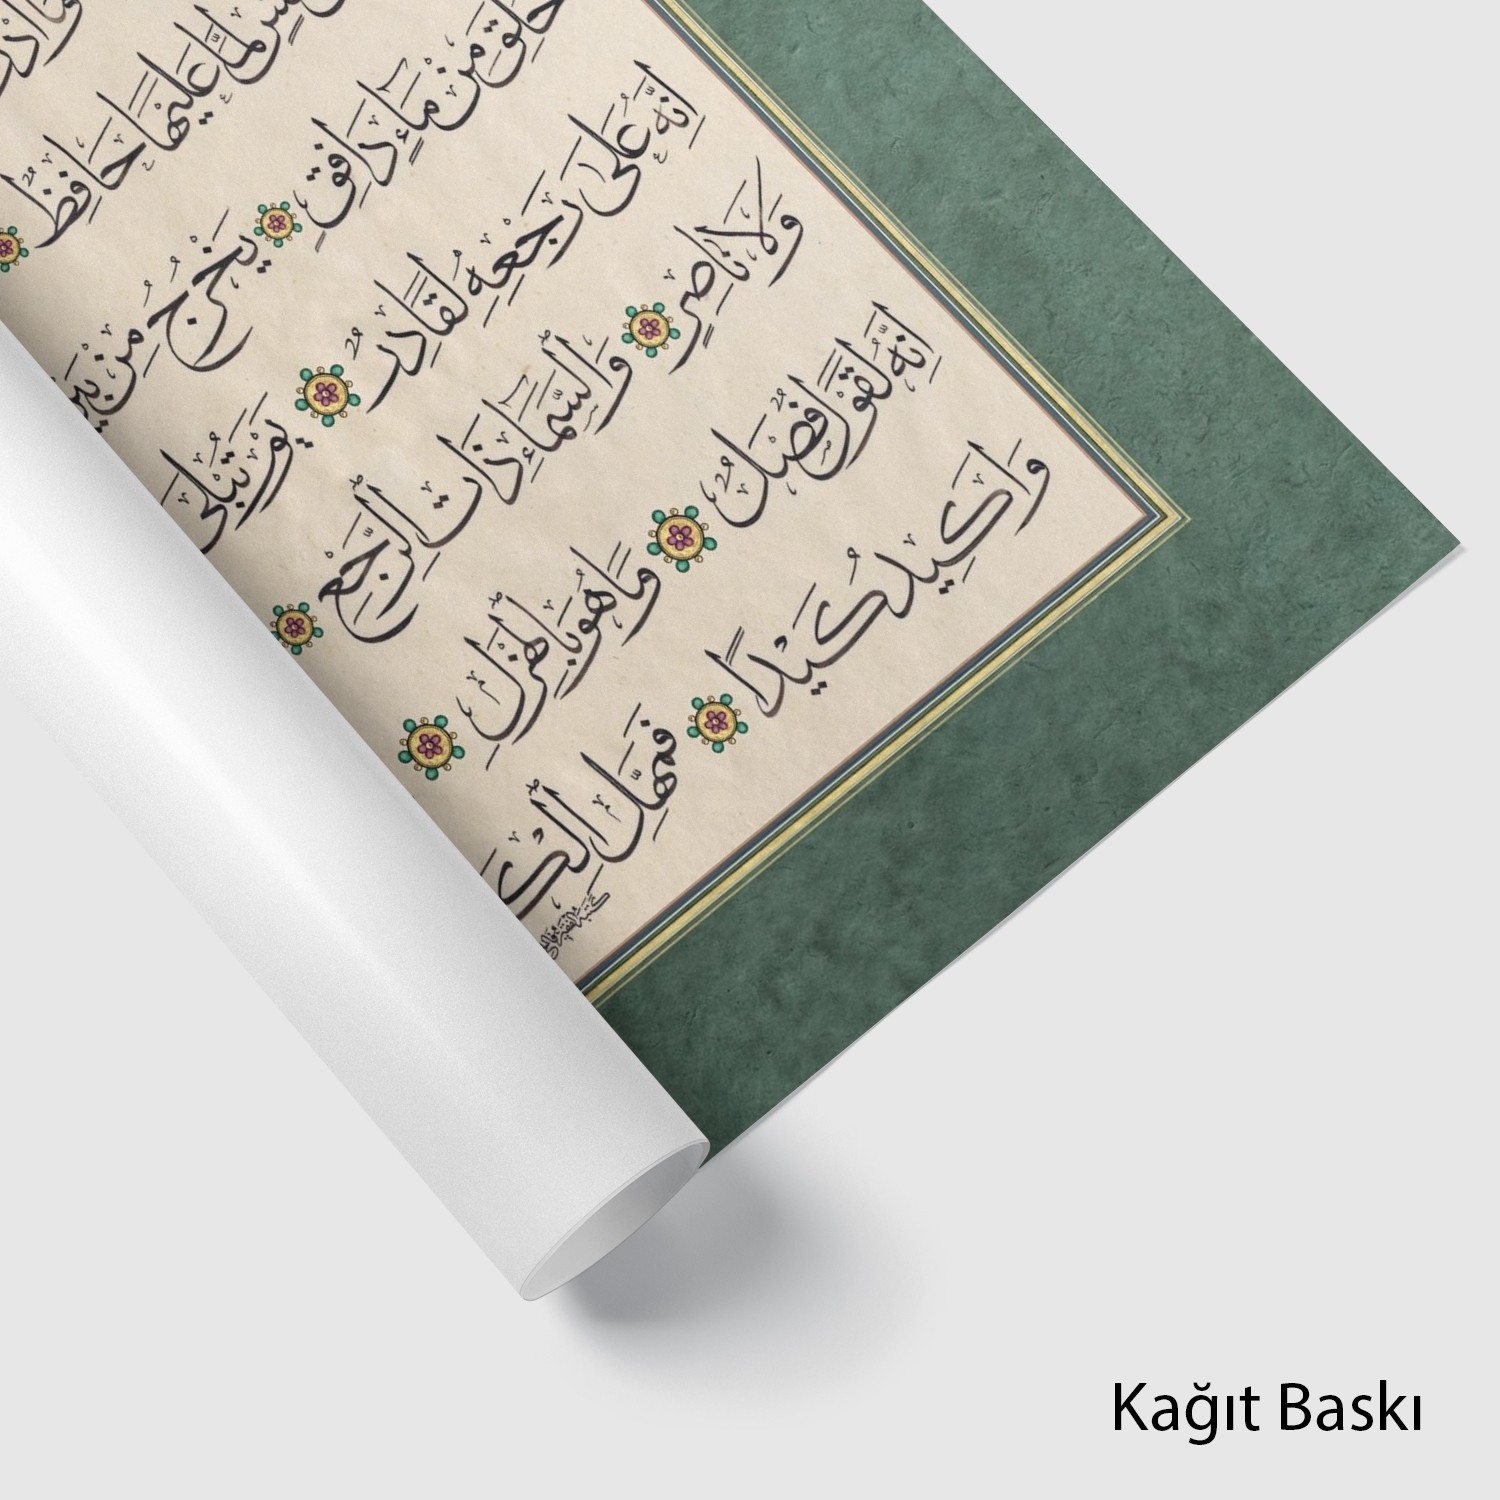 لَمَّا عَلَيْهَا حَافِظٌ
خُلِقَ مِنْ مَآءٍ دَافِقٍ يَخْرُجُ مِنْ بَيْنِ
اِنَّهُ عَلَى رَجْعِهِ لَقَادِرٌ يَوْمَ تُبْلَى
وَلَا نَاصِرٍ وَالسَّمَآءِ ذَاتِ الرَّجْعِ
اِنَّهُ لَقَوْلٌ فَصْلٌ وَمَا هُوَ بِالْهَزْلِ
وَاَكِيدُ كَيْدًا فَمَهِّلِ
كتبه الفقير
Kağıt Baskı